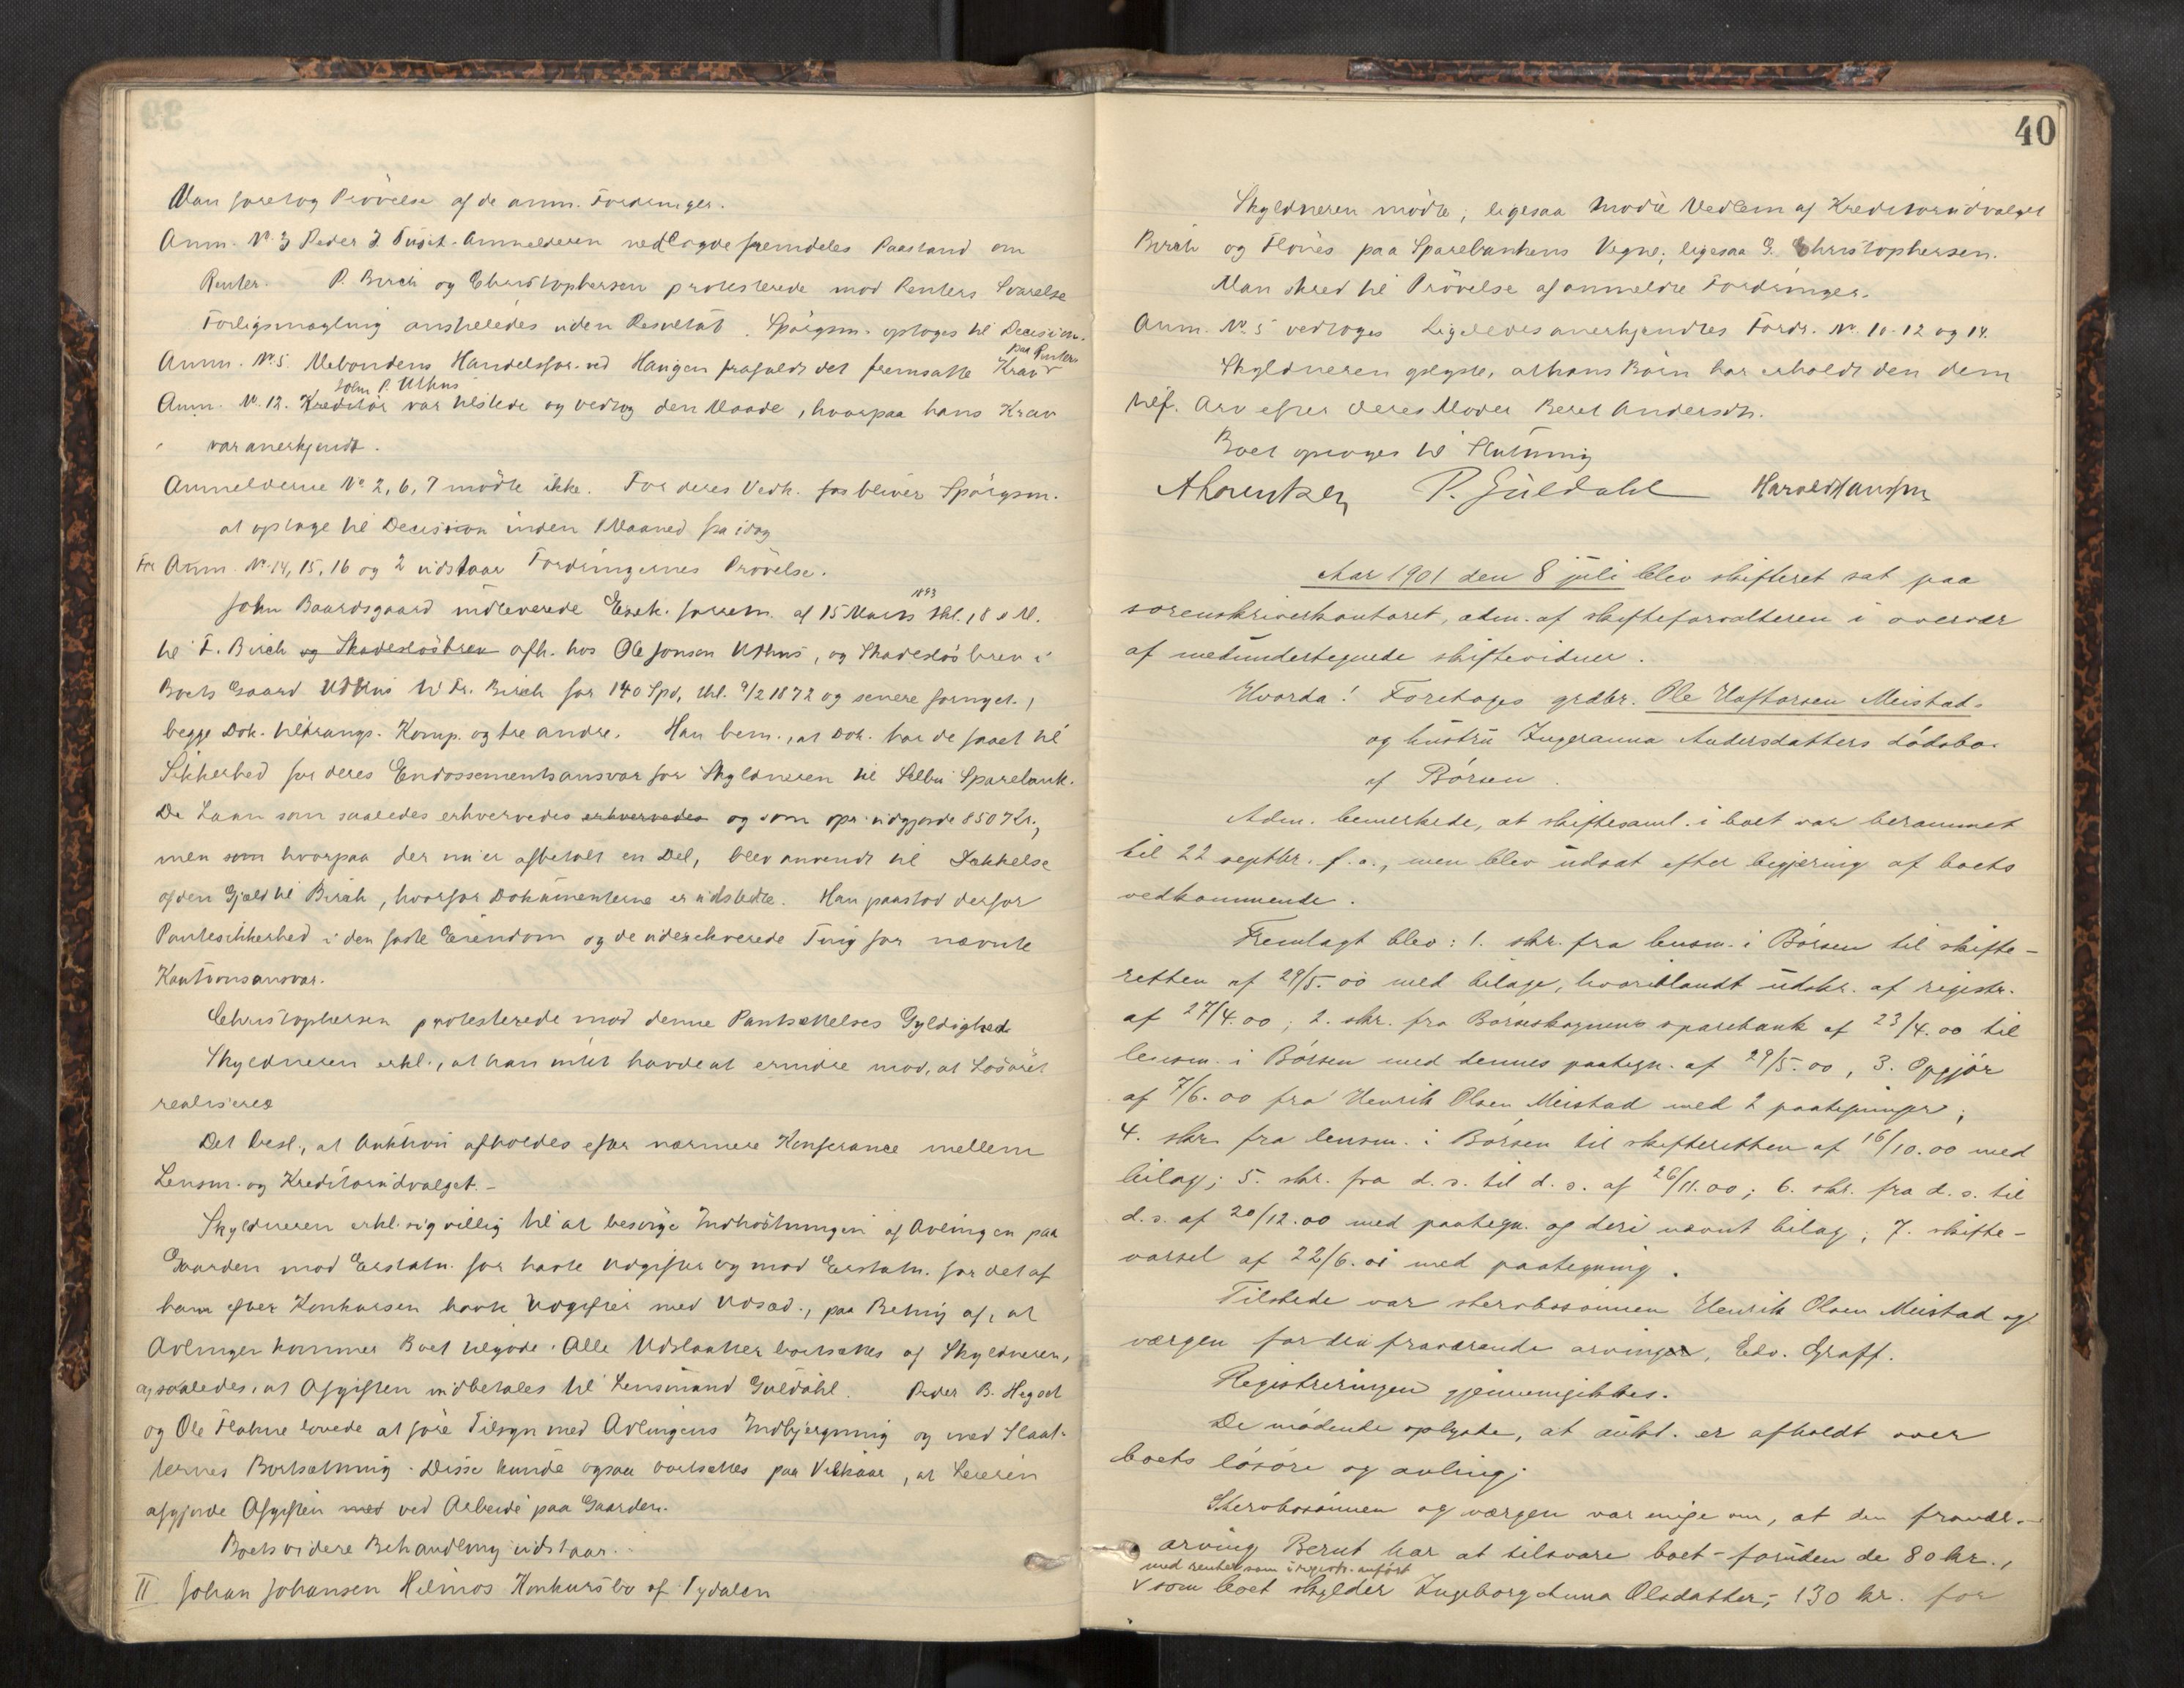 Man foretog Prövelse af de anm. Fordringer.
Anm. No 3 Peder J. Anmelderen nedlagde fremdeles Paastand om
Renter. P. Birch og Christophersen protesterede mod Renters Svarelse
Forligsmægling anstilledes uden Resultat. Spörgsm. optoges til Decision.
Anm. No 5. Mebondens Handelsfor. ved Haugen frafaldt det fremsatte Krav paa Renter
Anm. No. 12. Kreditor John P. Uthus var tilstede og vedtog den Maade, hvorpaa hans Krav
var anerkjendt.
Anmelderne No 2, 6, 7 mödte ikke. For deres Vedk. bliver Spörgsm.
at optage til Decision inden 1 Maaned fra idag
For Anm. No. 14, 15, 16 og 2 udstaar Fordringernes Prövelse.
John Baardsgaard indleverede Exek. forretn. af 15 Marts 1893 thl. 18 s. M.
til F. Birch og Skadeslösbrev afh. hos Ole Jonsen Uthus, og Skadeslösbrev i
Boets Gaard Uthus til Fr. Birch for 140 Spd, thl. 9/2 1872 og senere fornyet,
begge Dok. tiltransp. Komp. og tre andre. Han bem., at Dok. har de faaet til
Sikkerhed for deres Endossementsansvar for Skyldneren til Selbu Sparebank.
De Laan som saaledes erhvervedes erhvervedes og som opr. udgjorde 850 Kr.,
men som hvorpaa der nu er afbetalt en Del, blev anvendt til Dækkelse
af den Gjæld til Birch, hvorfor Dokumenterne er udstedte. Han paastod derfor
Pantesikkerhed i den faste Eiendom og de udexekverede Ting for nævnte
Kautionsansvar.
Christophersen protesterede mod denne Pantsættelses Gyldighed
Skyldneren erkl., at han intet havde at erindre mod, at Lösöret
realiseres
Det besl., at Auktion afholdes efter nærmere Konferance mellem
Lensm. og Kreditorudvalget.-
Skyldneren erkl. sig villig til at besörge Indhöstningen af Avlingen paa
Gaarden mod Erstatn. for havte Udgifter og mod Erstatn. for det af
ham efter Konkursen havte Udgifter med Udsæd., paa Beting. af, at
Avlingen kommer Boet tilgode. Alle Udslaatter bortsættes af Skyldneren,
og saaledes, at Afgiften indbetales til Lensmand Guldahl. Peder B. Hegset
og Ole Flakne lovede at före Tilsyn med Avlingens Indbjergning og med Slaat-
ternes Bortsætning. Disse kunde ogsaa bortsættes paa Vilkaar, at Leieren
afgjorde Afgiften med ved Arbeide paa Gaarden.
Boets videre Behandling udstaar.
II Johan Johansen Hilmos Konkursbo af Tydalen
40
Skyldneren mödte; ligesaa mödte Medlem af Kreditorudvalget
Birch og Flönes paa Sparebankens Vegne; ligesaa G. Christophersen.
Man skred til Prövelse af anmeldte Fordringer.
Anm. No. 5 vedtoges Ligeledes anerkjendtes Fordr. No. 10. 12 og 14.
Skyldneren oplyste, at hans Börn har erholdt den dem
tilf. Arv efter deres Moder Beret Andersdtr.
Boet optoges til Slutning
A Lorentzen P. Guldahl Harald Hansen
Aar 1901 den 8 juli blev skifteret sat paa
sorenskriverkontoret, adm. af skifteforvalteren i overvær
af medundertegnede skiftevidner.
Hvorda! Foretoges grdbr. Ole Haftorsen Meistad.
og hustru Ingeranna Andersdatters dödsbo
af Börsen.
Adm. bemerkede, at skiftesaml. i boet var berammet
til 22 septbr. f. a., men blev udsat efter begjæring af boets
vedkommende.
Fremlagt blev: 1. skr. fra lensm. i Börsen til skifte-
retten af 29/5. 00 med bilage, hvoriblandt udskr. af registr.
af 27/4. 00; 2. skr. fra Borseskognens sparebank af 23/4. 00 til
lensm. i Börsen med dennes paategn. af 29/5. 00, 3. Opgjör
af 7/6. 00 fra Henrik Olsen Meistad med 2 paategninger;
4. skr. fra lensm. i Börsen til skifteretten af 16/10. 00 med
bilag; 5. skr. fra d. s. til d. s. af 26/11. 00; 6. skr. fra d. s. til
d. s. af 20/12. 00 med paategn. og deri nævnt bilag; 7. skifte-
varsel af 22/6. 01 med paategning.
Tilstede var sterbosönnen Henrik Olsen Meistad og
værgen for den fraværende arving, Edv. Graff.
Registreringen gjennemgikkes.
De mödende oplyste, at aukt. er afholdt over
boets lösöre og avling;
Sterbosönnen og værgen var enige om, at den fravær.
arving Bernt har at tilsvare boet - foruden de 80 kr.,
med renter som i registr. anfört
som boet skylder Ingeborganna Olsdatter, - 130 kr. for